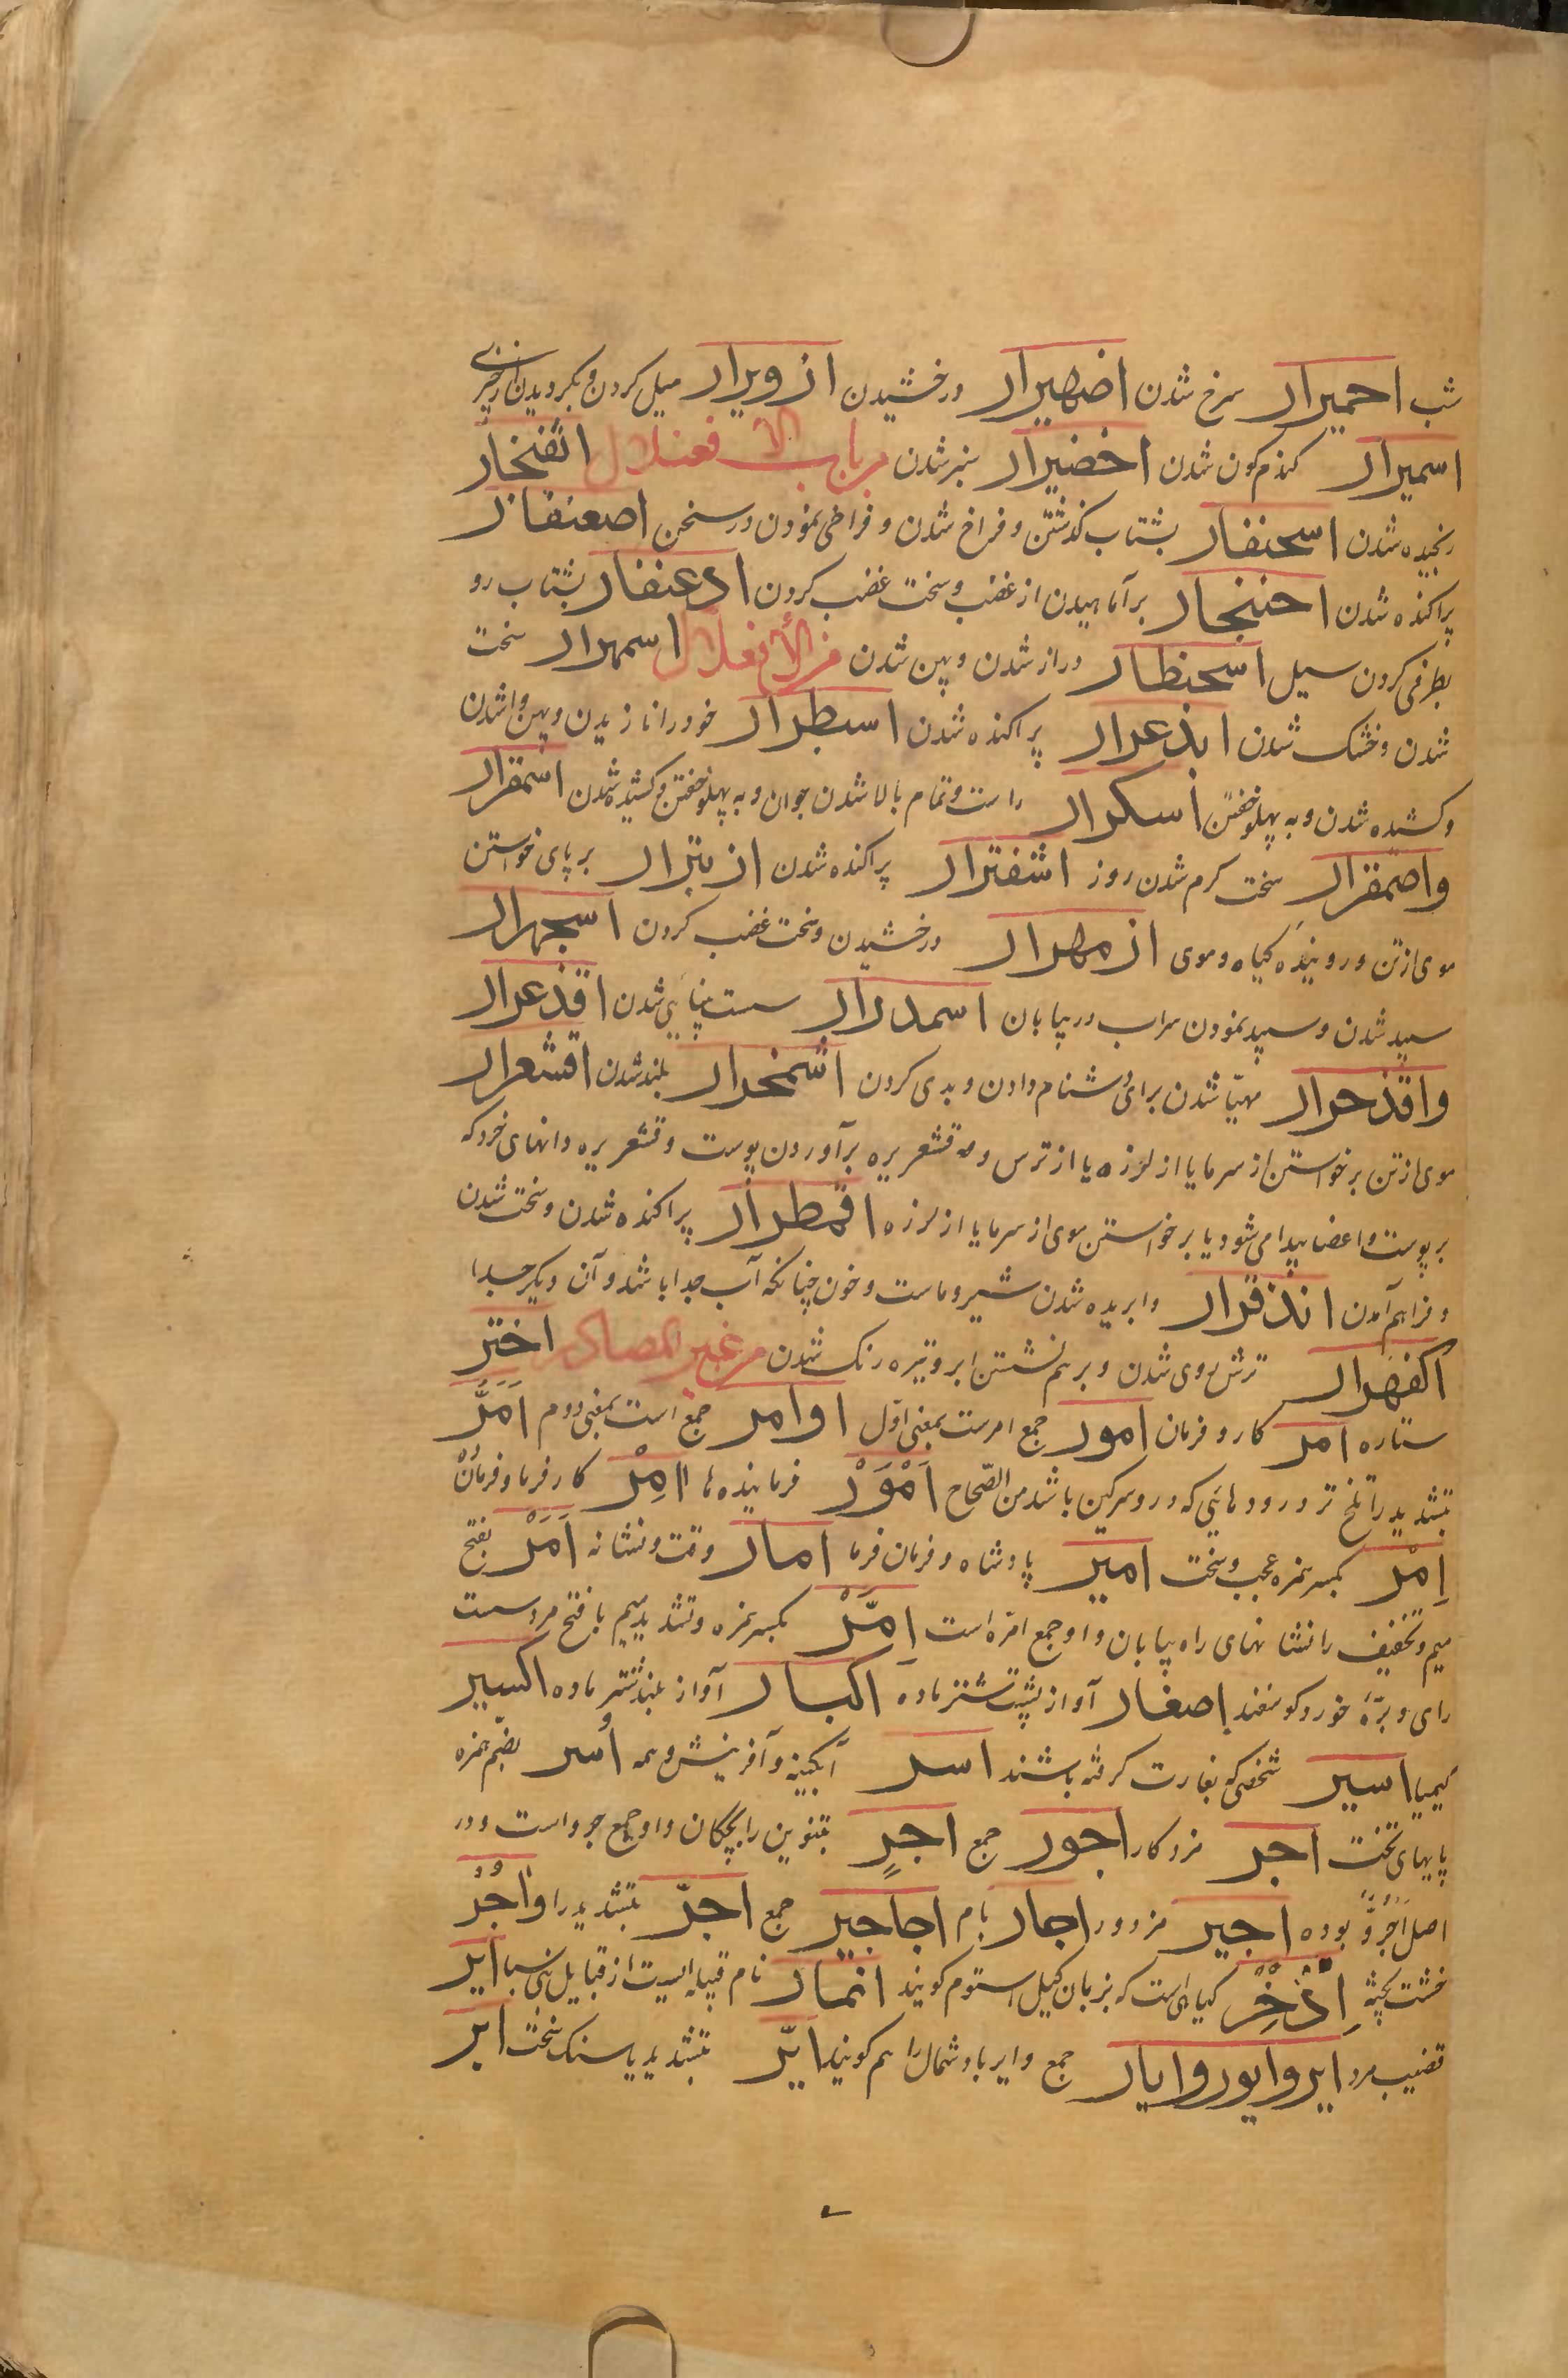 شب احمیرار سرخ شدن اضهیرار درخشیدن ازویرار میل کردن و بکردیدن از چیزی
اسمیرار کندم کون شدن اخضیرار سبز شدن من باب الافعنلال اثفنجار
رنجیده شدن اسحنفار بشتاب کذشتن و فراخ شدن و فراخی نمودن در سخن اصعنفار
پراکنده شدن احنجار برآماهیدن از غضب و سخت غضب کردن ادعنفار بشتاب رو
بطرفی کردن سیل اسحنطار دراز شدن و پهن شدن من الافعلال اسمهرار سخت
شدن و خشک شدن ابذعرار پراکنده شدن اسبطرار خود را نازیدن و پهن واشدن
و کشیده شدن و به پهلو خفتن اسکرار راست و تمام بالا شدن جوان و به پهلو خفتن و کشیده شدن اشمقرار
واصمقرار سخت کرم شدن روز اشفترار پراکنده شدن ازبئرار بر پای خواستن
موی از تن و روئیدن کیاه و موی ازمهرار درخشیدن و سخت غضب کردن اسجهرار
سپید شدن و سپید نمودن سراب در بیابان اسمدرار سست بینایی شدن اقذعرار
واقذحرار مهیّا شدن برای دشنام دادن و بدی کردن اشمخرار بلند شدن اقشعرار
موی از تن برخواستن از سرما یا از لرزه یا از ترس و مه قشعریره برآوردن پوست و قشعریره دانهای خرد که
بر پوست و اعضا پیدا می شود یا برخواستن موی از سرما یا از لرزه اقمطرار پراکنده شدن و سخت شدن
و فراهم آمدن انذقرار وابریده شدن شیر و ماست و خون چنانکه آب جدا باشد و آن دیکر جدا
اکفهرار ترش روی شدن و بر هم نشستن ابر و تیره رنک شدن من غیر المصادر اختر
ستاره امر کار و فرمان امور جمع امرست بمعنی اوّل اوامر جمع است بمعنی دوم اَمَرُّ
بتشدید را تلخ تر و رودهائی که در و سرکین باشد من الصّحاح اَمْوَرْ فرمانیده ها اامِرْ کارفرما و فرمان
اِمْر بکسر همزه عجب و سخت امیر پادشاه و فرمان فرما امار وقت و نشانه اَمَرْ بفتح
میم و تخفیف را نشانهای راه بیابان و او جمع امره است اِمَّرْ بکسر همزه و تشدید میم با فتح مرد سست
رای و برّهٔ خورد کوسفند اصغار آواز پشت شتر ماده اکبار آواز بلند شتر ماده اکسیر
کیمیا اسیر شخصی که بغارت کرفته باشند اسر آبکینه و آفرینش و همه اُسر بضم همزه
پایهای تخت اجر مزد کار اجور جمع اجرٍ بتنوین را بچکان و او جمع جرو است و در
اصل اَجْرُوٌ بوده اجیر مزدور اجار بام اجاجیر جمع اجرّ بتشدید را واجُر
خشت پخته اِذْخِرْ کیاهی است که بزبان کیل استوم کویند انمار نام قبیله ایست از قبایل بنی سبا ایر
قضیب مرد ایر وایور وایار جمع و ایر باد شمال را هم کویند ایّر بتشدید یا سنک سخت ابر